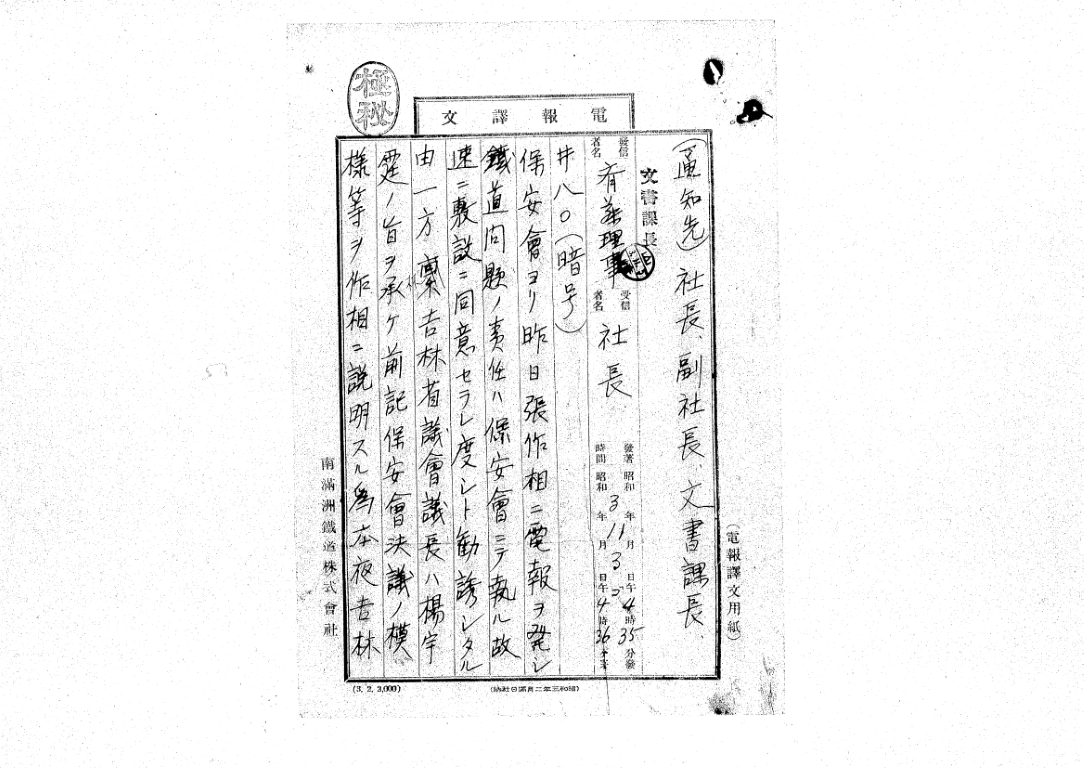 極秘
電報譯文
(電報譯文用紙)
(通知先)社長、副社長、文書課長、
文書課長
發信者名 斉藤理事 受信者名 社長
發著時間 昭和3年11月3日午后4時35分發
昭和 年 月 日午 4時36分著
井八〇(暗号)
保安會ヨリ昨日張作相ニ電報ヲ発シ
鐵道問題ノ責任ハ保安會ニテ執ル故
速ニ敷設ニ同意セラレ度シト勧誘シタル
由一方 吉林省議會議長ハ楊宇
霆ノ旨ヲ承ケ前記保安會決議ノ模
様等ヲ作相ニ説明スル為本夜吉林
南滿洲鐵道株式會社
(3. 2. 3,000)